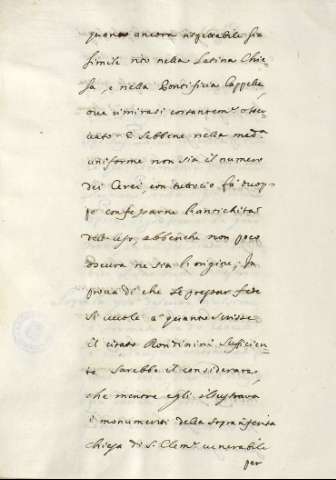 quanto ancora rispettabile sia
simile rito nella Latina Chie=
sa, e nella Pontificia Cappella
ove rimirasi costantem.e osser=
vato. E sebbene nella med.a
uniforme non sia il numero
dei Cerei, con tuttociò fà duop=
po confessarne l'antichità
dell'uso, abbenche non poco
oscura ne sia l'origine; In
prova di che se prestar fede
si vuole a quanto scrisse
il citato Rondinini sufficien=
te sarebbe il considerare,
che mentre egli illustrava
i monumenti della sopra riferita
chiesa di S. Clem.e venerabile
per